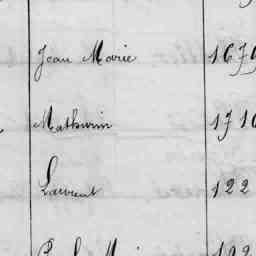 Jean Marie 1679
Mathurin 1716
Laurent 122